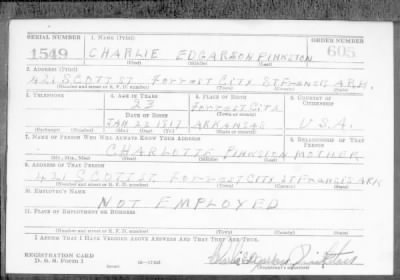 SERIAL NUMBER 1. NAME (Print) ORDER NUMBER
1549 CHARLIE EDGARSON PINKSTON 605
(First) (Middle) (Last)
2. ADDRESS (Print)
421 SCOTT ST. FORREST CITY ST FRANCIS ARK.
(Number and street or R. F. D. number) (Town) (County) (State)
3. TELEPHONE 4. AGE IN YEARS 5. PLACE OF BIRTH 6. COUNTRY OF CITIZENSHIP
23 FORREST CITY
DATE OF BIRTH (Town or county)
JAN 23 1917 ARKANSAS U.S.A.
(Exchange) (Number) (Mo.) (Day) (Yr.) (State or country)
7. NAME OF PERSON WHO WILL ALWAYS KNOW YOUR ADDRESS 8. RELATIONSHIP OF THAT PERSON
CHARLOTTE PINKSTON MOTHER
(Mr., Mrs., Miss) (First) (Middle) (Last)
9. ADDRESS OF THAT PERSON
421 SCOTT ST FORREST CITY ST FRANCIS ARK
(Number and street or R. F. D. number) (Town) (County) (State)
10. EMPLOYER'S NAME
NOT EMPLOYED
11. PLACE OF EMPLOYMENT OR BUSINESS
(Number and street or R. F. D. number) (Town) (County) (State)
I AFFIRM THAT I HAVE VERIFIED ABOVE ANSWERS AND THAT THEY ARE TRUE.
REGISTRATION CARD
D. S. S. Form 1 (Registrant's signature)